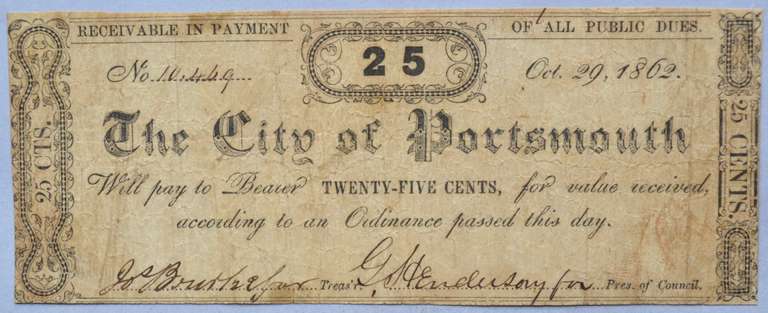 RECEIVABLE IN PAYMENT OF ALL PUBLIC DUES.
25
No. 10.449 Oct. 29, 1862.
25 CTS.
The City of Portsmouth
25 CENTS.
Will pay to Bearer TWENTY-FIVE CENTS, for value received,
according to an Ordinance passed this day.
Jos Bourke for Treas'r. G. Henderson for Pres. of Council.